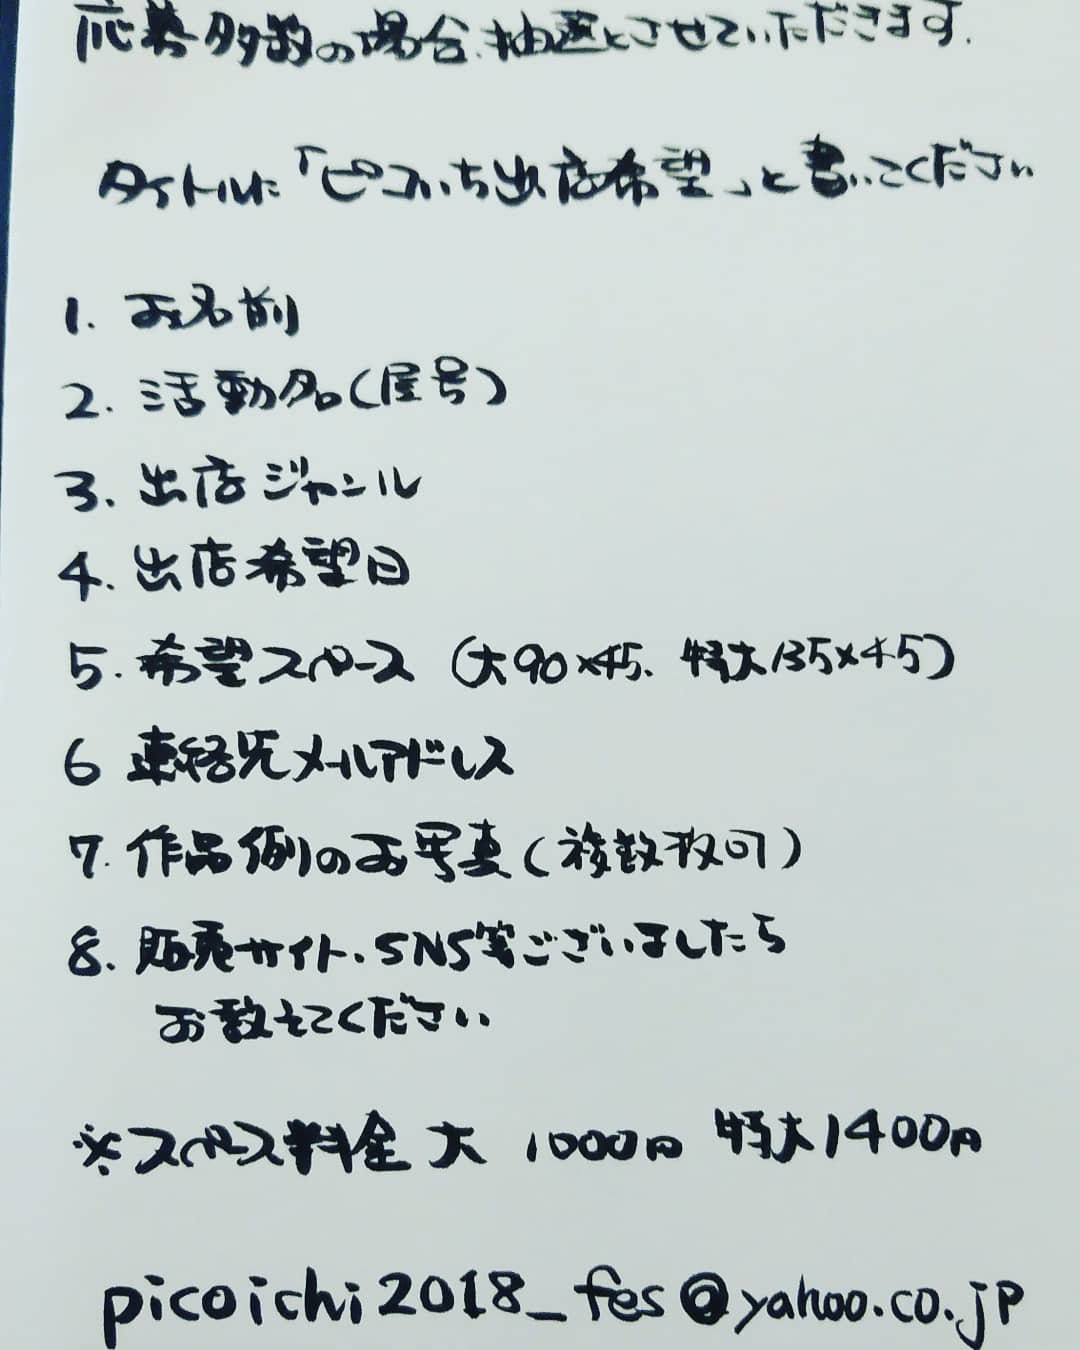 応募多数の場合、抽選とさせていただきます.
タイトルに「ピコいち出店希望」と書いてください
1. お名前
2. 活動名(屋号)
3. 出店ジャンル
4. 出店希望日
5. 希望スペース (大90×45、特大135×45)
6 連絡先メールアドレス
7. 作品例のお写真(複数枚可)
8. 販売サイト・SNS等ございましたら
お教えてください
※スペース料金 大 1000円 特大1400円
picoichi2018_fes@yahoo.co.jp